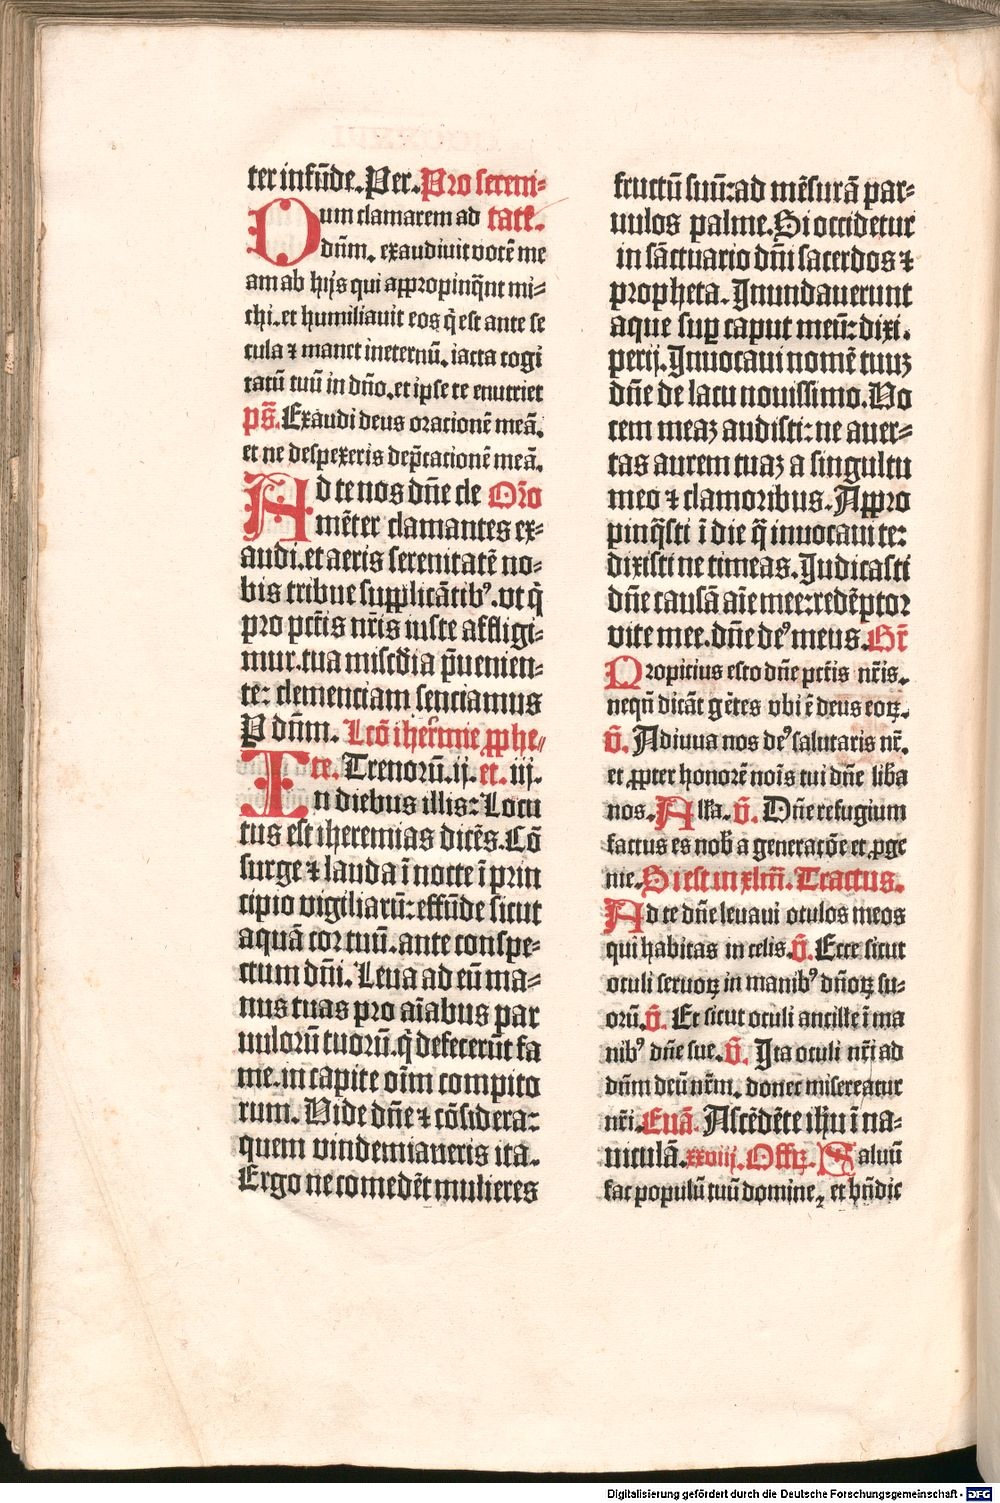 ter infūde. Per. Pro sereni⸗
Dum clamarem ad tatē.
dn̄m. exaudiuit vocē me
am ab hijs qui appropinq̄nt mi⸗
chi. et humiliauit eos q̄ est ante se
cula ⁊ manet ineternū. iacta cogi
tatū tuū in dn̄o. et ipse te enutriet
ps̄. Exaudi deus oracionē meā.
et ne despexeris dep̄cacionē meā.
Ad te nos dn̄e cle Or̄o
mēter clamantes ex⸗
audi. et aeris serenitatē no⸗
bis tribue supplicātib⁹. vt q̄
pro pct̄is nr̄is iuste affligi⸗
mur. tua misc̄dia p̄uenien⸗
te: clemenciam senciamus
P dn̄m. Lcō iher̄mie ꝓphe⸗
te. Trenorū. ij. et. iij.
In diebus illis: Locu
tus est iheremias dicēs. Cō
surge ⁊ lauda ī nocte ī prin
cipio vigiliarū: effūde sicut
aquā cor tuū. ante conspe⸗
ctum dn̄i. Leua ad eū ma⸗
nus tuas pro aīabus par
uulorū tuorū. q̄ defecerūt fa
me. in capite oīm compito
rum. Vide dn̄e ⁊ cōsidera:
quem vindemiaueris ita.
Ergo ne comedēt mulieres
fructū suū: ad mēsurā par⸗
uulos palme. Si occidetur
in sāctuario dn̄i sacerdos ⁊
propheta. Inundauerunt
aque sup̄ caput meū: dixi.
perij. Inuocaui nomē tuuꝫ
dn̄e de lacu nouissimo. Vo
cem meaꝫ audisti: ne auer⸗
tas aurem tuaꝫ a singultu
meo ⁊ clamoribus. Appro
pinq̄sti ī die q̄ inuocaui te:
dixisti ne timeas. Iudicasti
dn̄e causā aīe mee: redēptor
vite mee. dn̄e de⁹ meus. Gr̄
Propicius esto dn̄e pct̄is nr̄is.
neqn̄ dicāt gētes vbi ē deus eoꝝ.
V̄. Adiuua nos de⁹ salutaris nr̄.
et ꝓpter honorē noīs tui dn̄e lib̄a
nos. Alla. V̄. Dn̄e refugium
factus es nob̄ a generacōe et ꝓge
nie. Si est in xlm̄. Tractus.
Ad te dn̄e leuaui oculos meos
qui habitas in celis. V̄. Ecce sicut
oculi seruoꝝ in manib⁹ dn̄oꝝ su⸗
orū. V̄. Et sicut oculi ancille ī ma
nib⁹ dn̄e sue. V̄. Ita oculi nr̄i ad
dn̄m deū nr̄m. donec misereatur
nr̄i. Euā. Ascēdēte ihu ī na⸗
uiculā. xxviij. Offꝝ. Saluū
fac populū tuū domine, et bn̄dic
Digitalisierung gefördert durch die Deutsche Forschungsgemeinschaft - DFG